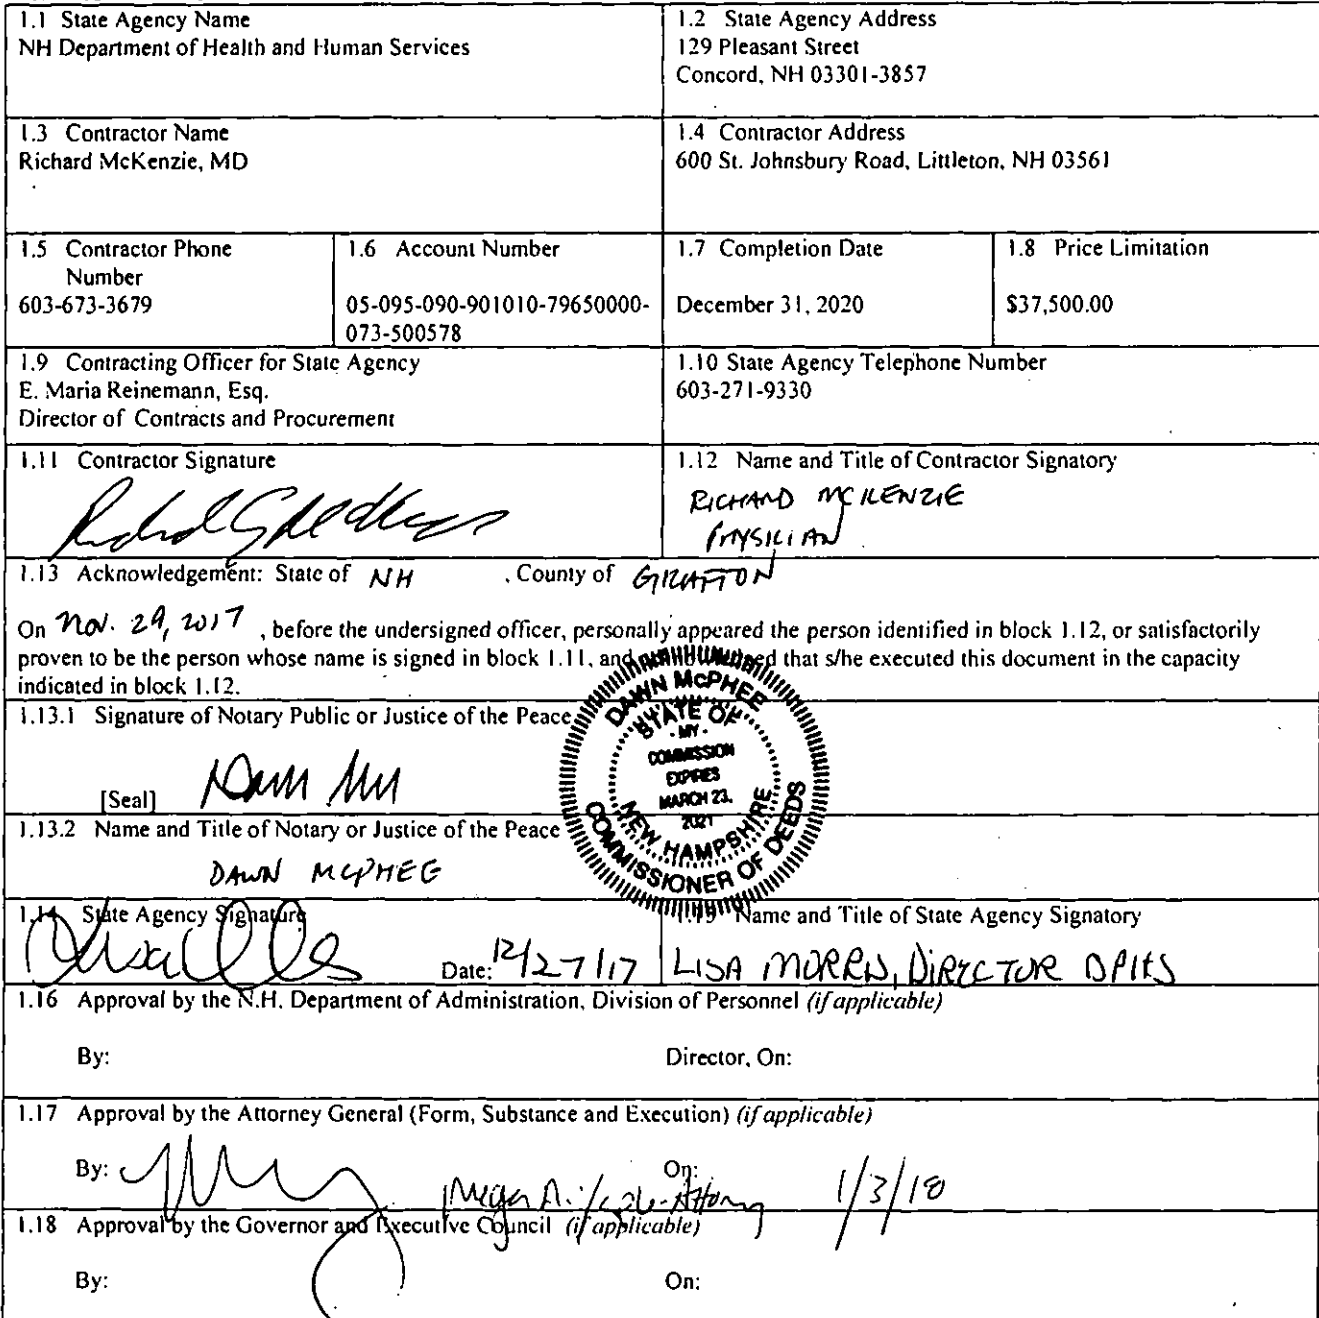 1.1 State Agency Name
NH Department of Health and Human Services
1.2 State Agency Address
129 Pleasant Street
Concord, NH 03301-3857
1.3 Contractor Name
Richard McKenzie, MD
1.4 Contractor Address
600 St. Johnsbury Road, Littleton, NH 03561
1.5 Contractor Phone
Number
603-673-3679
1.6 Account Number
05-095-090-901010-79650000-
073-500578
1.7 Completion Date
December 31, 2020
1.8 Price Limitation
$37,500.00
1.9 Contracting Officer for State Agency
E. Maria Reinemann, Esq.
Director of Contracts and Procurement
1.10 State Agency Telephone Number
603-271-9330
1.11 Contractor Signature
1.12 Name and Title of Contractor Signatory
RICHARD MCKENZIE
PHYSICIAN
1.13 Acknowledgement: State of NH , County of GRAFTON
On Nov. 29, 2017 , before the undersigned officer, personally appeared the person identified in block 1.12, or satisfactorily
proven to be the person whose name is signed in block 1.11, and that s/he executed this document in the capacity
indicated in block 1.12.
1.13.1 Signature of Notary Public or Justice of the Peace
[Seal]
DAWN McPHEE
STATE OF
- MY -
COMMISSION
EXPIRES
MARCH 23,
2021
NEW HAMPSHIRE
COMMISSIONER OF DEEDS
1.13.2 Name and Title of Notary or Justice of the Peace
DAWN MCPHEE
1.14 State Agency Signature
Date: 12/27/17
1.15 Name and Title of State Agency Signatory
LISA MORRIS, DIRECTOR DPHS
1.16 Approval by the N.H. Department of Administration, Division of Personnel (if applicable)
By: Director, On:
1.17 Approval by the Attorney General (Form, Substance and Execution) (if applicable)
By: On: 1/3/18
1.18 Approval by the Governor and Executive Council (if applicable)
By: On: